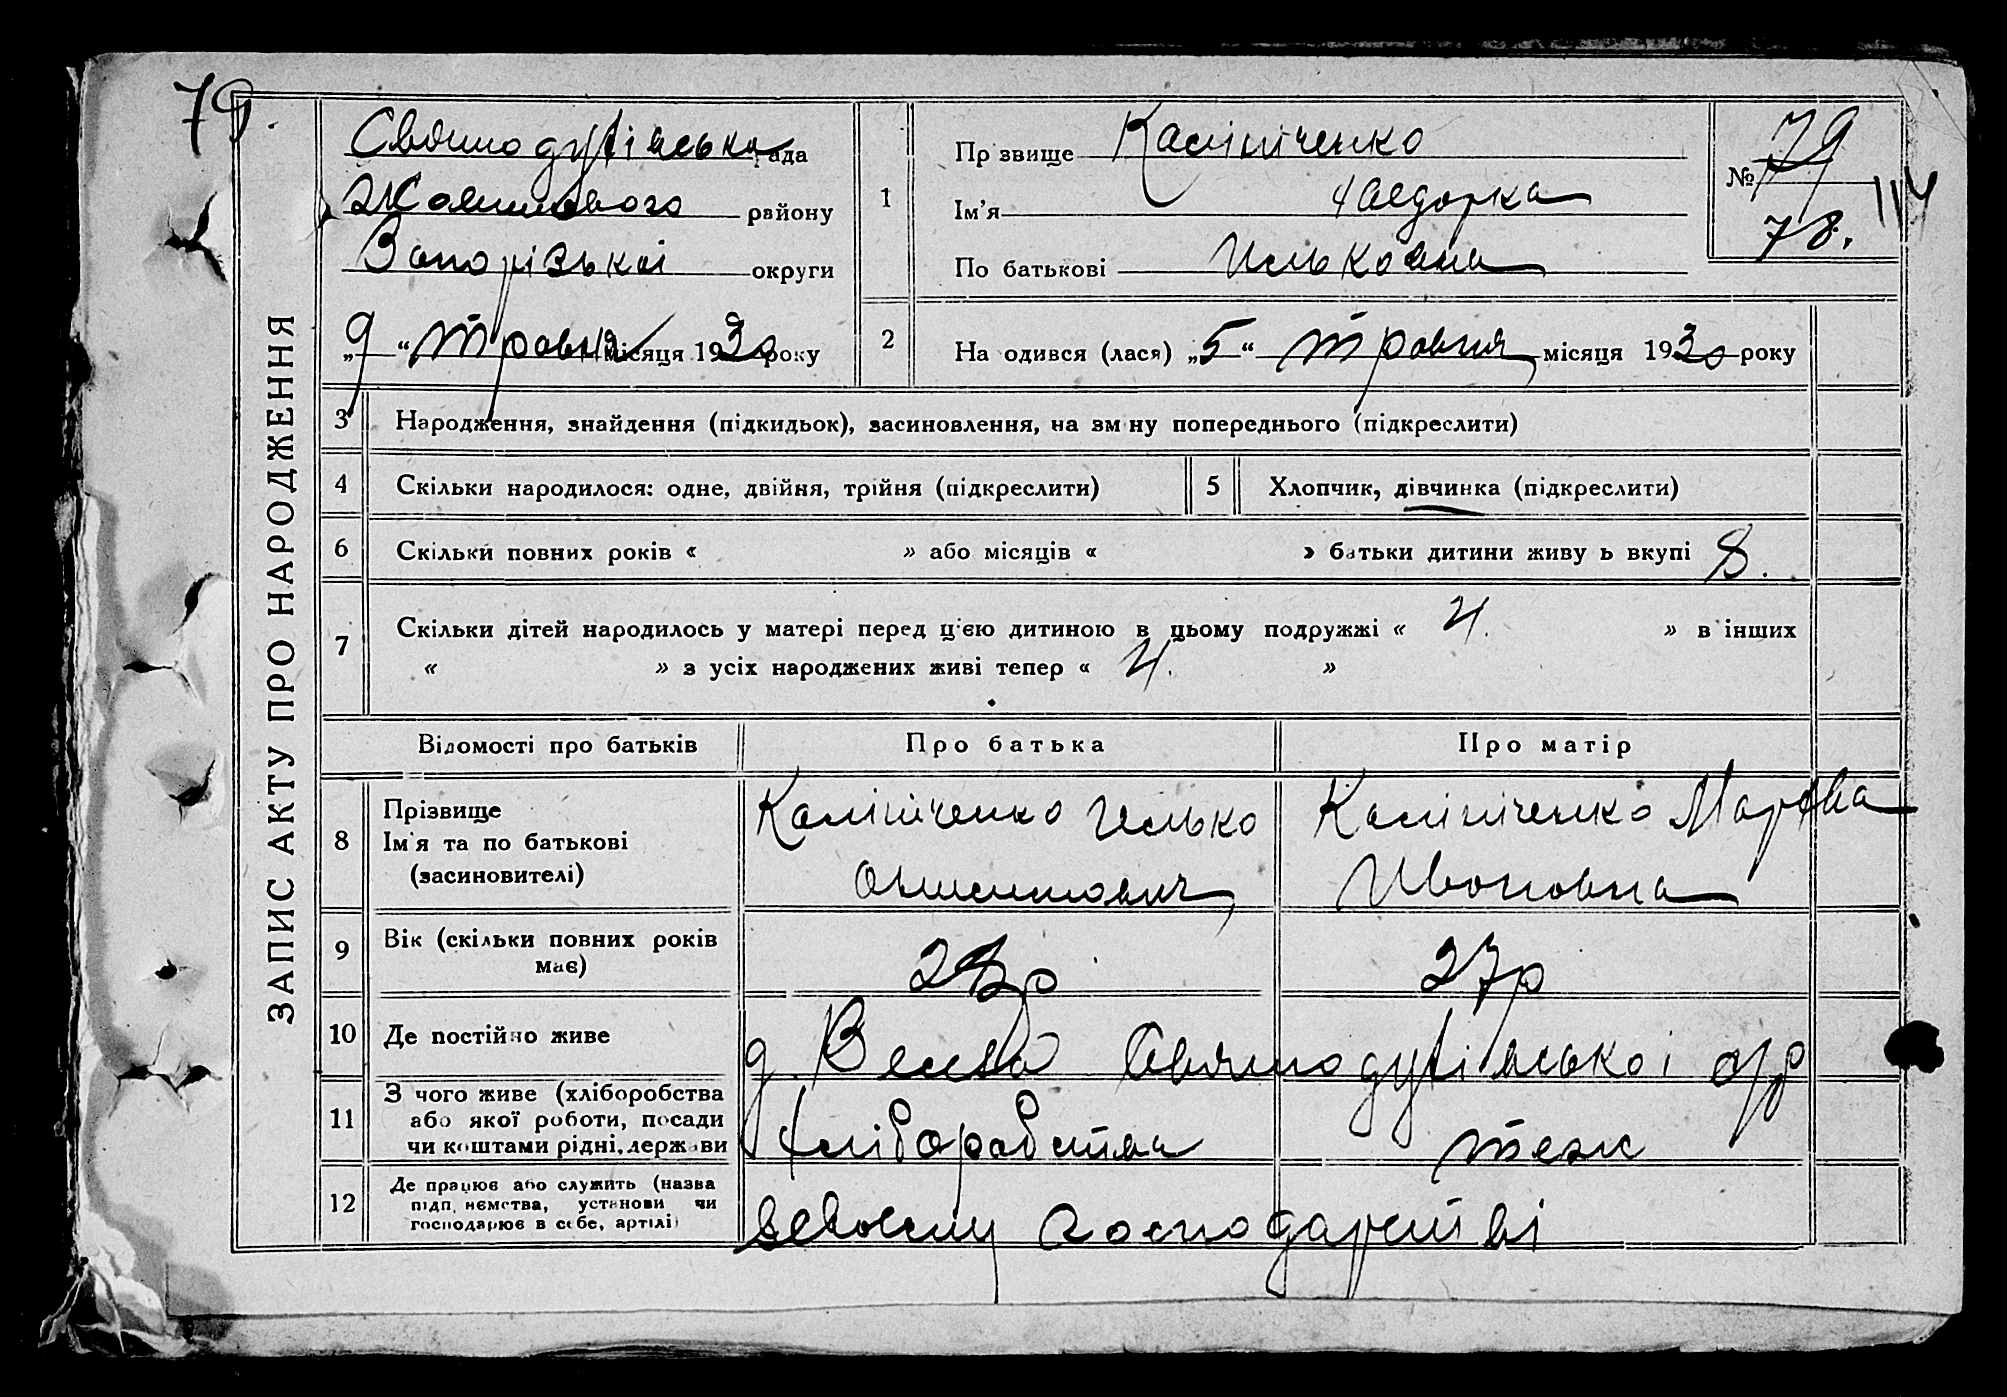 79.
ЗАПИС АКТУ ПРО НАРОДЖЕННЯ
Святодухівська рада
Жовтневого району
Запорізької округи
„9“ травня місяця 1930 року
1
Прізвище Калініченко
Ім'я Хведорка
По батькові Ильковна
№ 79
78.
114
2
Народився (лася) „5“ травня місяця 1930 року
3
Народження, знайдення (підкидьок), засиновлення, на зміну попереднього (підкреслити)
4
Скільки народилося: одне, двійня, трійня (підкреслити)
5
Хлопчик, дівчинка (підкреслити)
6
Скільки повних років « » або місяців « » батьки дитини живуть вкупі 8.
7
Скільки дітей народилось у матері перед цією дитиною в цьому подружжі « 4. » в інших
« » з усіх народжених живі тепер « 4. »
Відомості про батьків
Про батька
Про матір
8
Прізвище
Ім'я та по батькові
(засиновителі)
Калініченко Илько
Калініченко Марфа
Ивановна
9
Вік (скільки повних років
має)
27р
10
Де постійно живе
Святодухівської с/р
11
З чого живе (хліборобства
або якої роботи, посади
чи коштами рідні, держави
Хліборобства
теж
12
Де працює або служить (назва
підприємства, установи чи
господарює в себе, артілі)
всвоєму господарстві